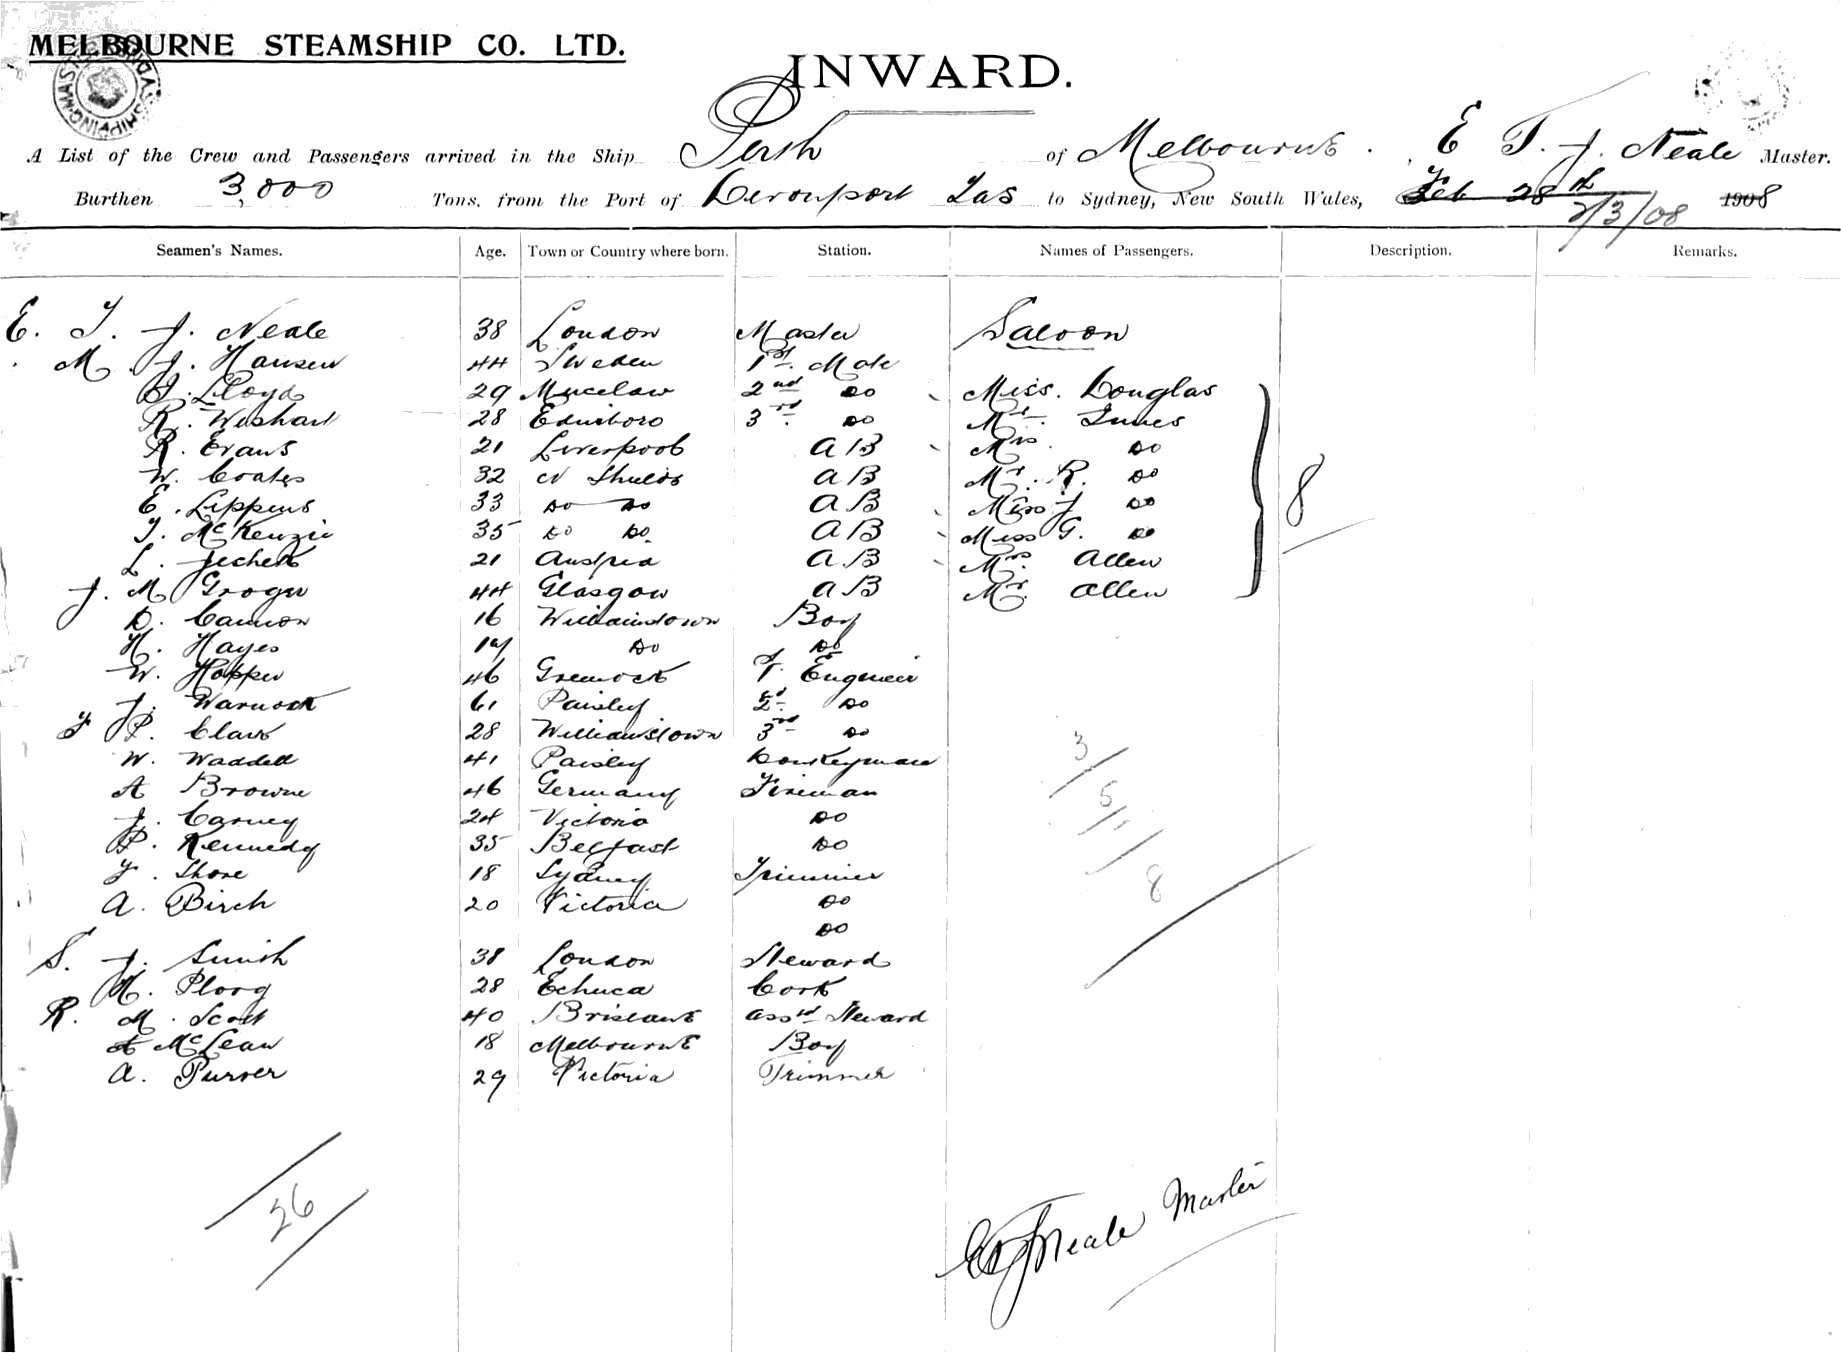 MELBOURNE STEAMSHIP CO. LTD.
INWARD.
A List of the Crew and Passengers arrived in the Ship Perth of Melbourne. E T. J. Neale Master.
Burthen 3,000 Tons, from the Port of Devonport Tas to Sydney, New South Wales, Feb 28th 1908
2/3/08
Seamen's Names. Age. Town or Country where born. Station. Names of Passengers. Description. Remarks.
E. T. J. Neale 38 London Master Saloon
M J. Hansen 44 Sweden 1st. Mate
J. Lloyd 29 2nd Do Miss. Douglas
R. Wishart 28 Edinboro 3rd. Do Mr. Innes
R. Evans 21 Liverpool AB Mrs. Do
W. Coates 32 N Shields AB Mr. R. Do
E. Lippens 33 Do Do AB Miss J Do
T. McKenzie 35 Do Do. AB Miss G. Do
L. 21 Austria AB Mrs. Allen
J. M Groger 44 Glasgow AB Mr. Allen
8
D. Cannon 16 Williamstown Boy
H. Hayes 17 Do Do
W. Hopper 46 Greenock 1st. Engineer
J. Warnock 61 Paisley 2d. Do
F P. Clark 28 Williamstown 3rd Do
W. Waddell 41 Paisley Donkeyman
A Browne 46 Germany Fireman
J. Carney 24 Victoria Do
P. Kennedy 35 Belfast Do
F. Shore 18 Sydney Trimmer
A. Birch 20 Victoria Do
Do
S. J. Smith 38 London Steward
H. Ploog 28 Echuca Cook
R. M. Scott 40 Brisbane Asst Steward
A McLean 18 Melbourne Boy
A. Purser 29 Victoria Trimmer
3/5/1/8
26
E T J Neale Master